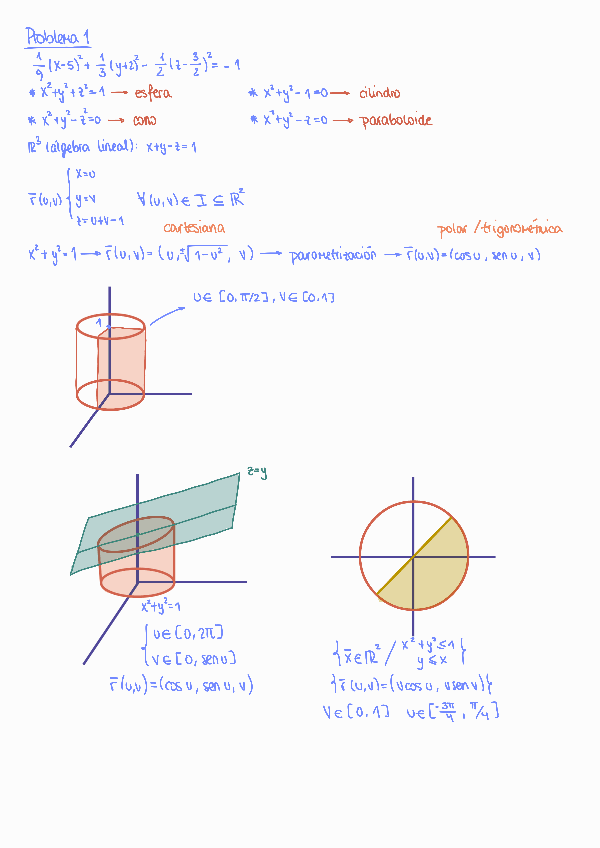 Problema 1
1/9 (x-5)² + 1/3 (y+2)² - 1/2 (z - 3/2)² = -1
* x²+y²+z²=1 → esfera
* x²+y²-1=0 → cilindro
* x²+y²-z²=0 → cono
* x²+y²-z=0 → paraboloide
ℝ³ (álgebra lineal): x+y-z=1
r̄(u,v) { x=u
y=v
z=u+v-1
∀(u,v) ∈ I ⊆ ℝ²
cartesiana
polar / trigonométrica
x²+y²=1 → r̄(u,v) = (u, ±√(1-u²), v) → parametrización → r̄(u,v)=(cos u, sen u, v)
u ∈ [0, π/2], v ∈ [0,1]
1
z=y
x²+y²=1
{ u ∈ [0, 2π]
v ∈ [0, sen u]
r̄(u,v)=(cos u, sen u, v)
{ x̄ ∈ ℝ² / x²+y² ≤ 1
y ≤ x }
{ r̄(u,v)=(v cos u, v sen v) }
v ∈ [0,1] u ∈ [-3π/4, π/4]